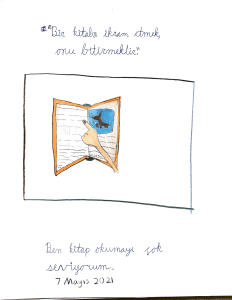 "Bir kitaba ikram etmek,
onu bitirmektir."
Ben kitap okumayı çok
seviyorum.
7 Mayıs 2021